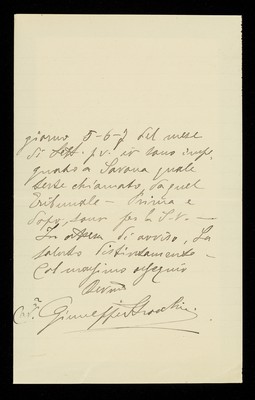 giorno 5-6-7 del mese
di Sett. p.v. io sono impe
gnato a Savona quale
teste chiamato, da quel
Tribunale — Prima e
dopo, sono per la S.V. —
In attesa di avviso, La
saluto distintamente —
Col massimo ossequio
Devmo
Cav. Giuseppe